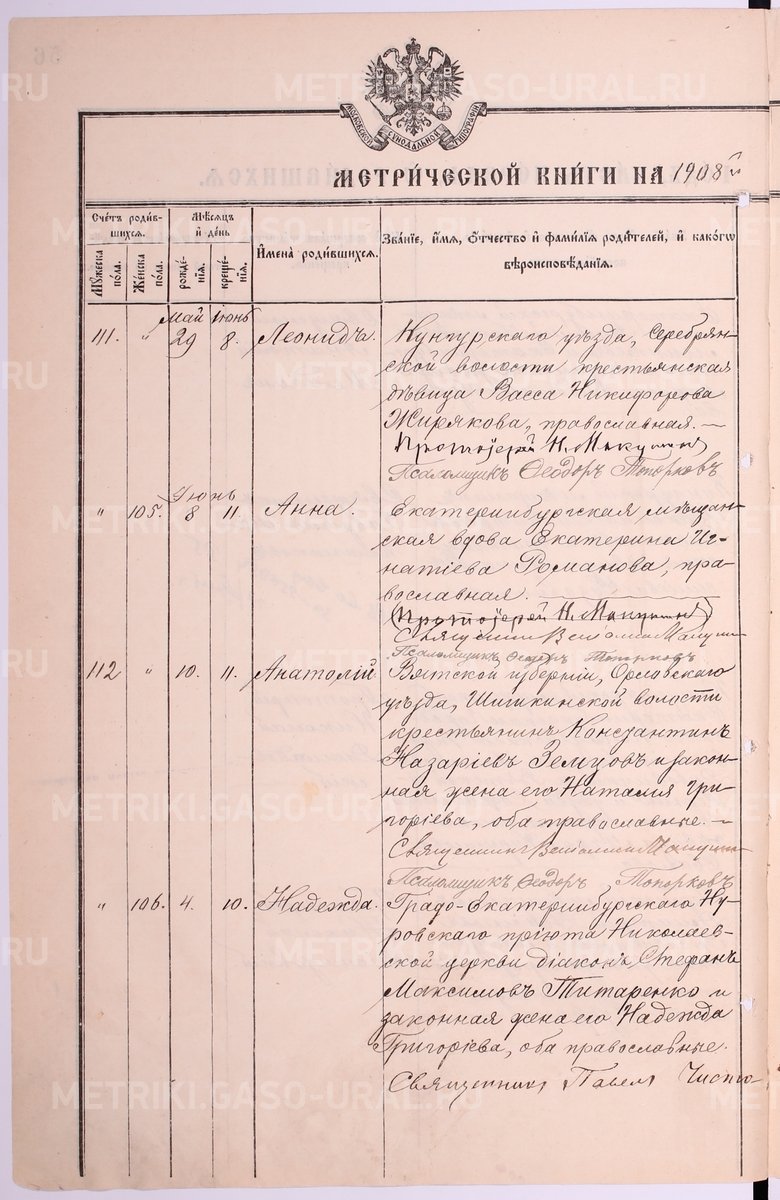 МОСКОВСКОЙ СѴНОДАЛЬНОЙ ТИПОГРАФІИ
МЕТРИ́ЧЕСКОЙ КНИ́ГИ НА 1908 й
Сче́тъ роди́в-
шихсѧ.
Мѣ́сѧцъ
и҆ де́нь
И҆мена̀ роди́вшихсѧ.
Зва́нїе, и҆́мѧ, ѻ҆́тчество и҆ фами́лїѧ роди́телей, и҆ како́гѡ
вѣроисповѣ́данїѧ.
Мꙋ́жеска по́ла.
Же́нска по́ла.
рожде́-нїѧ.
креще́-нїѧ.
Май Іюнь
111. " 29 8. Леонидъ. Кунгурскаго уѣзда, Серебрян-
ской волости крестьянская
дѣвица Васса Никифорова
Жирякова, православная. —
Протоіерей Н.
Псаломщикъ Ѳеодоръ Топорковъ
Іюнь
" 105. 8 11. Анна. Екатеринбургская мѣщан-
ская вдова Екатерина Иг-
натіева Романова, пра-
вославная.
(Протоіерей Н.
Священникъ
Псаломщикъ Ѳеодоръ Топорковъ
112 " 10. 11. Анатолій Вятской губерніи, Орловскаго
уѣзда, Шишкинской волости
крестьянинъ Константинъ
Назаріевъ Земцовъ и закон-
ная жена его Наталія Гри-
горіева, оба православные. —
Священникъ
Псаломщикъ Ѳеодоръ Топорковъ
" 106. 4. 10. Надежда. Градо-Екатеринбургскаго Ну-
ровскаго пріюта Николаев-
ской церкви діаконъ Стефанъ
Максимовъ Титаренко и
законная жена его Надежда
Григоріева, оба православные.
Священникъ Павелъ
METRIKI.GASO-URAL.RU